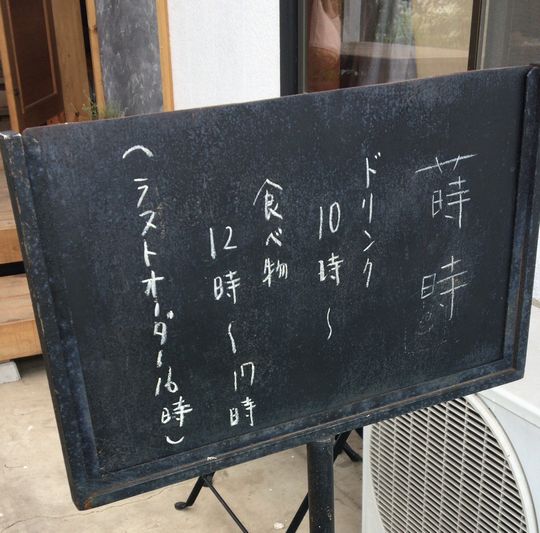 蒔時
ドリンク
10時〜
食べ物
12時〜17時
(ラストオーダー16時)